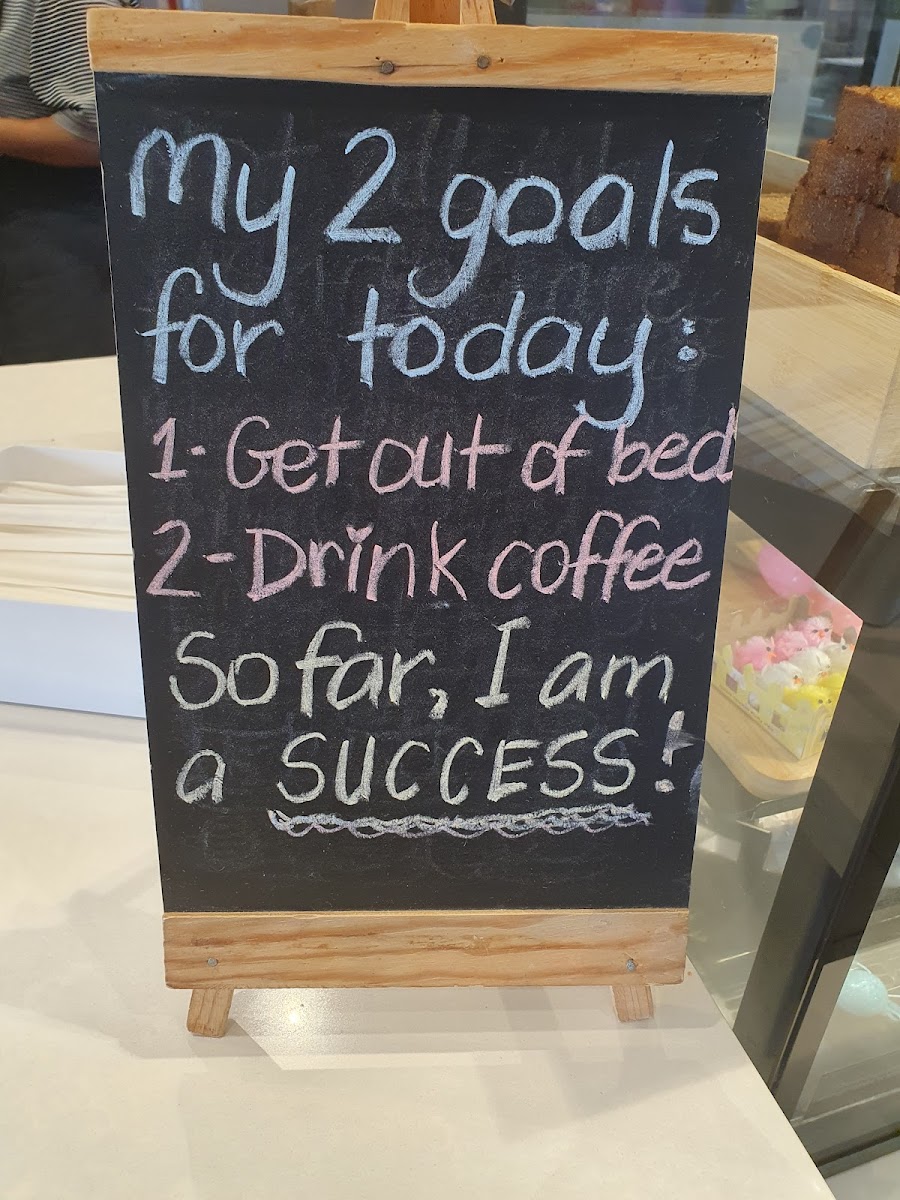 My 2 goals
for today:
1- Get out of bed
2- Drink coffee
So far, I am
a SUCCESS!